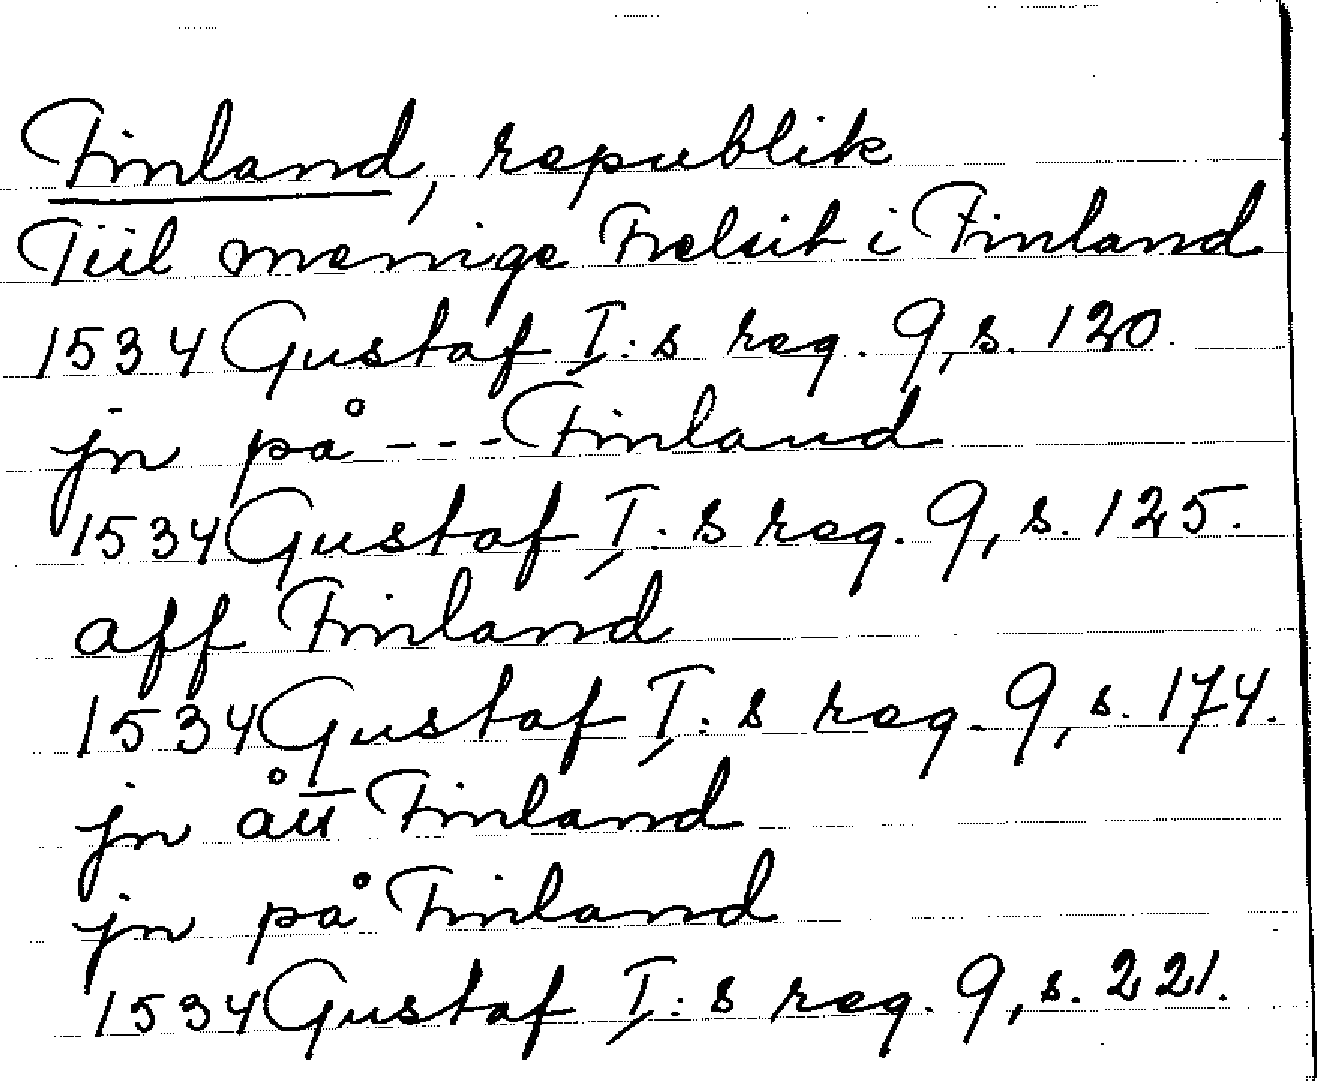 Finland, republik
Tiil menige Frelsit i Finland
1534 Gustaf I:s reg. 9, s. 120.
jn på --- Finland
1534 Gustaf I:s reg. 9, s. 125.
aff Finland
1534 Gustaf I:s reg. 9, s. 174.
jn åu̅ Finland
jn på Finland
1534 Gustaf I:s reg. 9, s. 221.